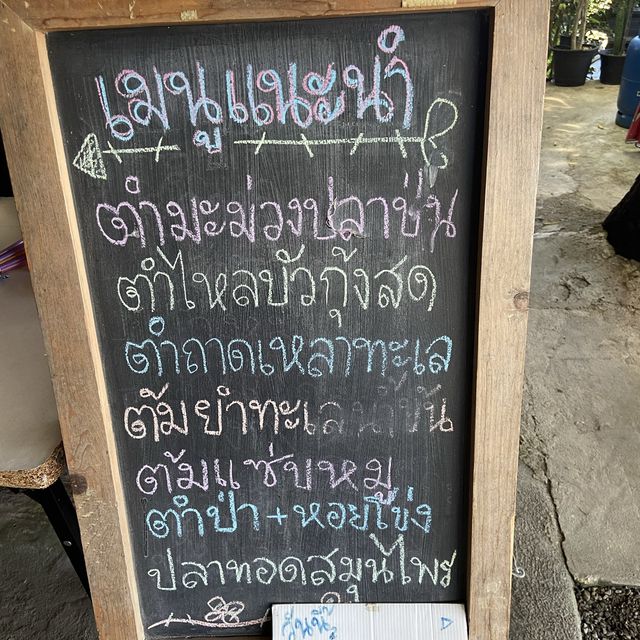 เมนูแนะนำ
ตำมะม่วงปลาป่น
ตำไหลบัวกุ้งสด
ตำถาดเหลาทะเล
ต้มยำทะเลน้ำข้น
ต้มแซ่บหมู
ตำป่า+หอยโข่ง
ปลาทอดสมุนไพร
วันนี้